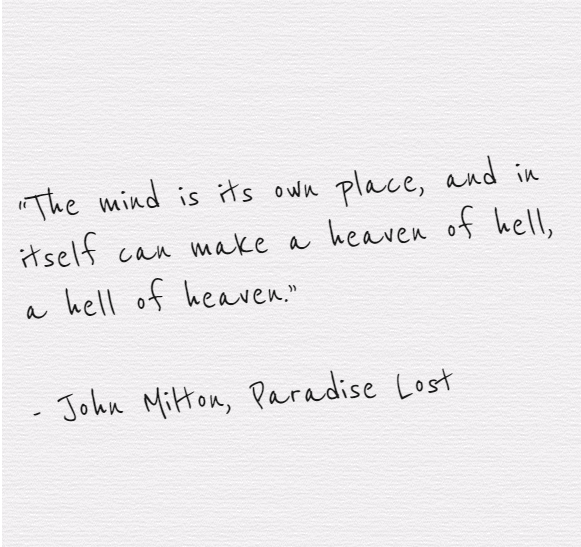 "The mind is its own place, and in
itself can make a heaven of hell,
a hell of heaven."
- John Milton, Paradise Lost